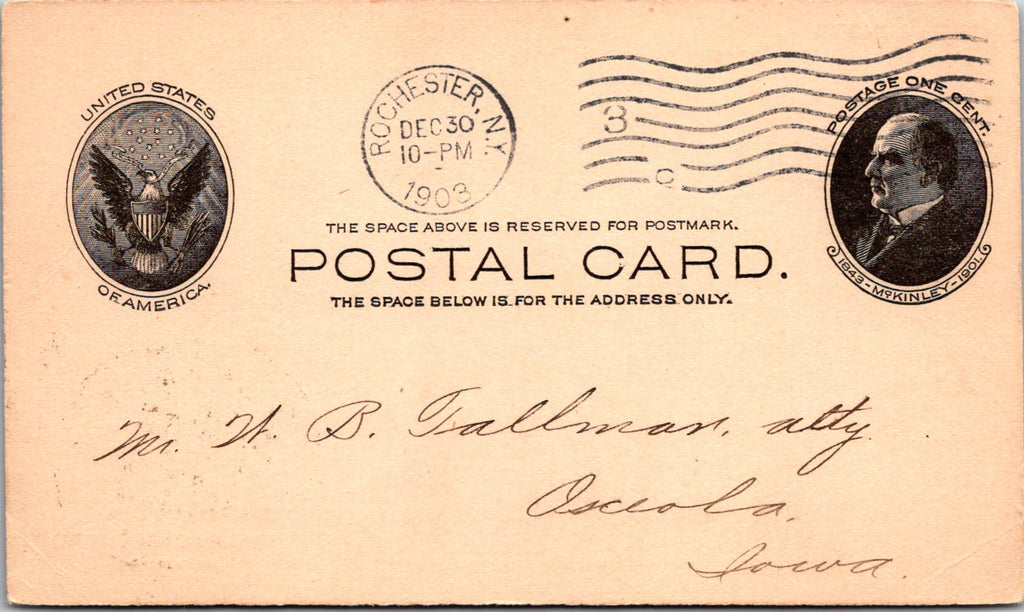 UNITED STATES
OF AMERICA.
ROCHESTER, N.Y.
DEC 30
10-PM
1903
3
C
POSTAGE ONE CENT.
1843-McKINLEY-1901.
THE SPACE ABOVE IS RESERVED FOR POSTMARK.
POSTAL CARD.
THE SPACE BELOW IS FOR THE ADDRESS ONLY.
Mr. W. B. Tallman, atty
Osceola,
Iowa.